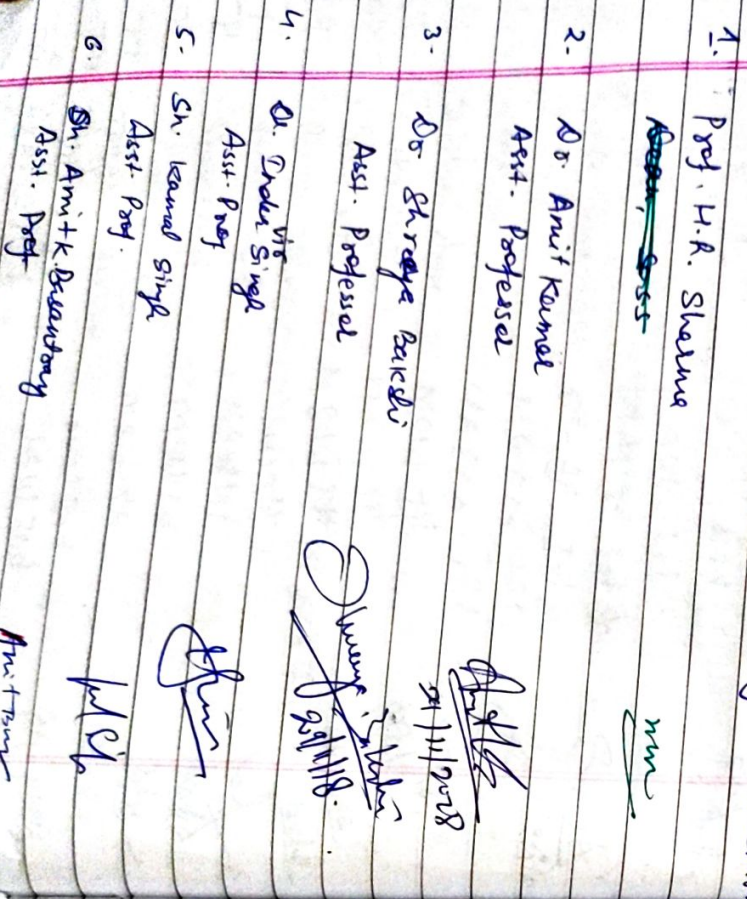 1. Prof. H.R. Sharma
2. Dr. Amit Kumar
Asst. Professor
3. Dr. Shreya Bakshi
Asst. Professor
4. Dr. Inder Vir Singh
Asst. Prof
5. Sh. Kamal Singh
Asst. Prof.
6. Sh. Amit K Basantray
Asst. Prof
29/11/18.